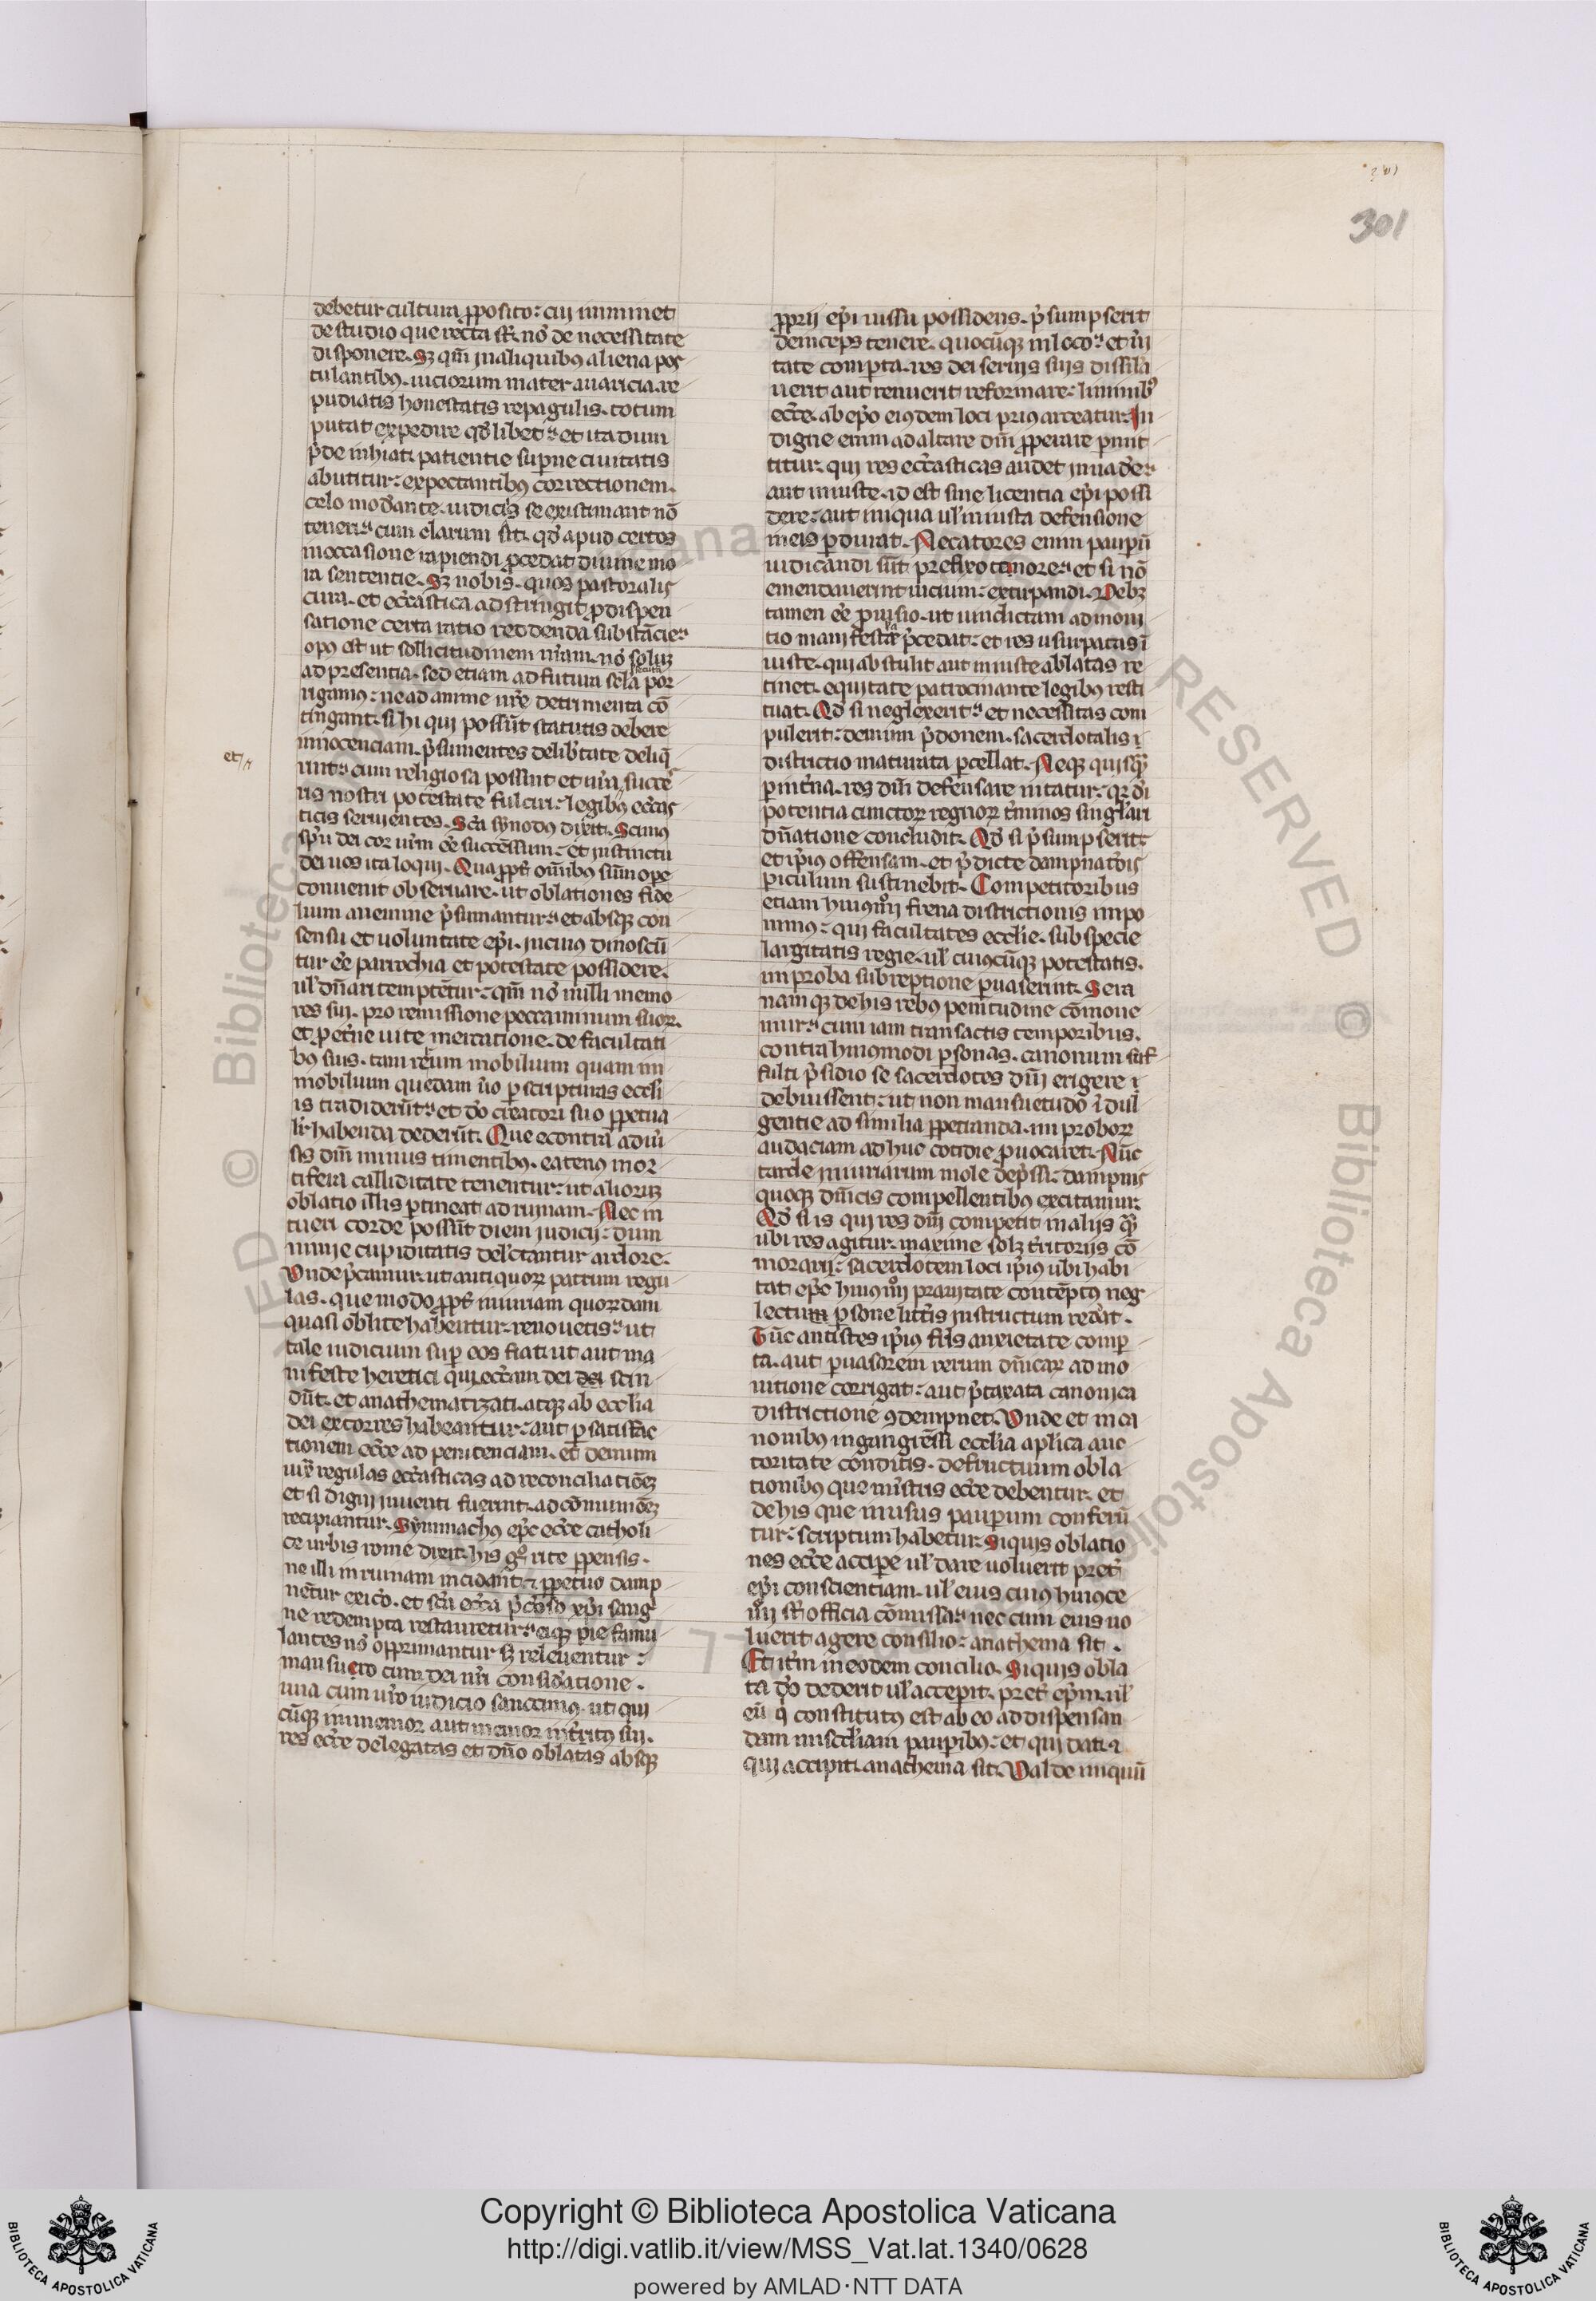 301
debetur cultura ꝓposito: cui iminet
de studio que recta sꝉ. nō de necessitate
disponere. Sꝫ qm̄ in aliquibꝰ aliena pos
tulantibꝰ. uiciorum mater auaricia. re
pudiatis honestatis repagulis. totum
putat expedire qd̄ libet: et ita dum
p̄de inhiat patientie suꝑne ciuitatis
abutitur: expectantibꝰ correctionem.
celo mod̓ante. iudiciis se existimant nō
teneri: cum clarum sit. qd̄ apud certos
in occasione rapiendi ꝓcedat diuine mo
ra sententie. Sꝫ nobis. quos pastoralis
cura. et ecc̄astica adstringit ꝓ dispen
satione certa ratio reddenda substācie:
opꝰ est ut sollicitudinem nr̄am. nō soluꝫ
ad presentia. sed etiam ad futura sc̄la por
rigamꝰ: ne ad anime nr̄e detrimenta cō
tingant. si hi qui possūt statutis debere
innocenciam. p̄sumentes delib̓tate deliq̄
et
unt: cum religiosa possint et nr̄a succe
us nostri potestate fulciri: legibꝰ ecc̄as
ticis seruientes. Sc̄a synodus dixit. Scimꝰ
sp̄u dei cor ur̄m ēe succēssum: et instinctu
dei uos ita loqui. Quaꝓpt̓ om̄ibus sūm ope
conuenit obseruare. ut oblationes fide
lium a nemine p̄sumantur: et absqꝫ con
sensu et uoluntate ep̄i. in cuius dinoscū
tur ēe parrochia et potestate possidere.
ul̓ dn̄ari temptētur: qm̄ nō nulli memo
res sui. pro remissione peccaminum suoꝝ.
et ꝓ et̓ne uite mercatione. de facultati
bꝰ suis. tam rerum mobilium quam im
mobilium quedam u̓o ꝑ scripturas eccl̓i
is tradiderūt: et dō creatori suo ꝓpetua
lit̓ habenda dederūt. Que econtra adu̓
sis dm̄ minus timentibꝰ. eatenꝰ mor
tifera calliditate tenentur: ut alioꝝ
oblatio illis ꝑtineat ad ruinam. Nec in
tueri corde possūt diem iudicij: dum
nimie cupiditatis delc̄tantur ardore.
Vnde p̄camur: ut antiquoꝝ patrum regu
las. que modo ꝓpt̓ iniuriam quorūdam
quasi oblite habentur. renouetis: ut
tale iudicium suꝑ eos fiat: ut aut ma
nifeste heretici qui ecc̄am dei dei scin
dūt. et anathematizati. atqꝫ ab ecc̄lia
dei extorres habeantur: aut ꝑ satisfac
tionem ecc̄e ad penitenciam. et demum
iux̄ regulas ecc̄asticas ad reconciliatiōeꝫ
et si digni inuenti fuerint. ad cōmuniōeꝫ
recipiantur. Symmachꝰ ep̄c ecc̄e catholi
ce urbis rome dixit: his gͦ rite ꝑpensis.
ne illi in ruinam incidant. ⁊ ꝑpetuo damp
netur exic̓o. et sc̄a ecc̄a p̄cōso xp̄i sang
ne redempta restauretur: eiqꝫ pie famu
lantes nō opprimantur sꝫ releuentur:
mansuro cum dei nr̄i consid̓atione.
una cum uro iudicio sanccimꝰ. ut qui
cūqꝫ inmemor aut memor int̓itꝰ sui.
res ecc̄e delegatas et dn̄o oblatas absqꝫ
ꝓprij ep̄i iussu possidens. p̄sumpserit
deinceps tenere. quocūqꝫ in loco: et u̓i
tate comꝑta. res dei seruis suis dissila
uerit aut renuerit reformare: liminibꝰ
ecc̄e. ab ep̄o eiusdem loci prius arceatur: In
digne enim ad altare dn̄i ꝓperare ꝑmit
titur. qui res ecc̄asticas audet inuad̓e:
aut iniuste. id est sine licentia ep̄i possi
dere: aut iniqua ul̓ iniusta defensione
in eis ꝑdurat. Necatores enim pauꝑū
iudicandi sūt prefixo tenore: et si nō
emendauerint uicium: extirpandi. Debꝫ
tamen ēe ꝓuisio. ut uindictam admoni
tio manifesta p̄cedat: et res usurpatas ī
iuste. qui abstulit aut iniuste ablatas re
tinet. equitate patrocinante legibꝰ resti
tuat. Qd̄ si neglexerit: et necessitas com
pulerit: demum p̄donem. sacerdotalis ⁊
districtio maturata ꝑcellat. Neqꝫ quisqꝫ
ꝑ int̓na. res dn̄i defensare nitatur: qꝛ dī
potentia cunctoꝝ regnoꝝ t̓minos singl̓ari
dn̄atione concludit. Qd̄ si p̄sumpserit:
et ip̄ius offensam. et p̄dicte dampnat̓ois
ꝑiculum sustinebit. Competitoribus
etiam huiꝰmͦi frena districtionis impo
nimꝰ: qui facultates ecclie. sub specie
largitatis regie. ul̓ cuiuscūqꝫ potestatis.
improba subreptione ꝑuaserint. Sera
namqꝫ de his rebꝰ penitudine cōmone
mur: cum iam transactis temporibus.
contra huiꝰmodi ꝑsonas. canonum suf
fulti p̄sidio se sacerdotes dn̄i erigere ⁊
debuissent: ut non mansuetudo ī dul
gentie ad similia ꝑpetranda. improboꝝ
audaciam ad huc cotidie ꝓuocaret. Nūc
tarde iniuriarum mole dep̄ssi: dampnis
quoqꝫ dn̄icis compellentibꝰ excitamur.
Qd̄ si is qui res dn̄i competit in alijs qꝫ
ubi res agitur. maxime solꝫ t̓ritorijs cō
morari: sacerdotem loci ip̄ius ubi habi
tat ep̄c huiꝰmͦi prauitate contēptꝰ neg
lectum ꝑsone litt̓is instructum redd̓at.
Tūc antistes ip̄ius fr̄is anxietate comꝑ
ta. aut ꝑuasorem rerum dn̄icaꝝ admo
nitione corrigat: aut p̄taxata canonica
districtione ꝯdempnet. Vnde et in ca
nonibꝰ in gangrēsi ecclia aplica auc
toritate conditis. de fructuum obla
tionibꝰ que mīstris ecc̄e debentur. et
de his que in usus pauꝑum conferū
tur: scriptum habetur. Siquis oblatio
nes ecc̄e acciꝑe ul̓ dare uoluerit pret̓
ep̄i conscientiam. ul̓ eius cuiꝰ huiꝰce
mͦi sꝉ officia cōmissa: nec cum eius uo
luerit agere consilio: anathema sit.
Et it̓m in eodem concilio. Siquis obla
ta dō dederit ul̓ acceꝑit. pret̓ ep̄m. ul̓
eū qͥ constitutꝰ est ab eo ad dispensan
dam misc̄d̓iam pauꝑibꝰ: et qui dat. ⁊
qui accipit. anathema sit. Valde iniquū
Copyright © Biblioteca Apostolica Vaticana
http://digi.vatlib.it/view/MSS_Vat.lat.1340/0628
powered by AMLAD·NTT DATA
BIBLIOTECA APOSTOLICA VATICANA
BIBLIOTECA APOSTOLICA VATICANA